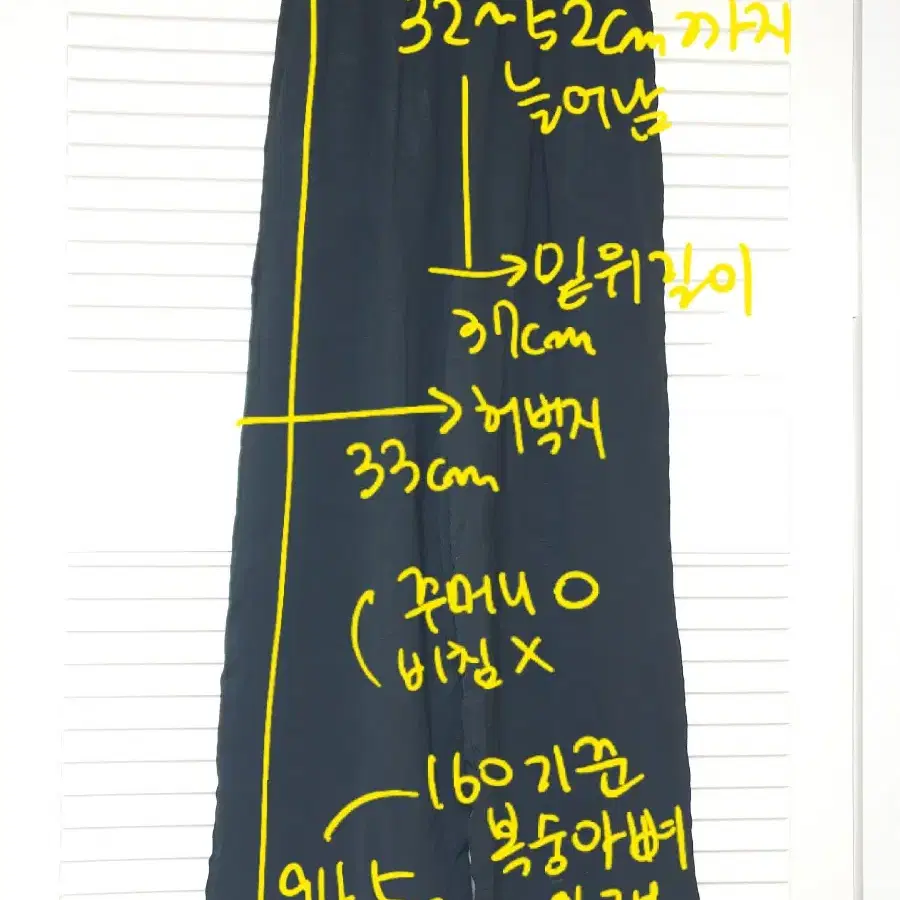 32~52cm까지
늘어남
밑위길이
37cm
허벅지
33cm
주머니 O
비침 X
160기준
복숭아뼈